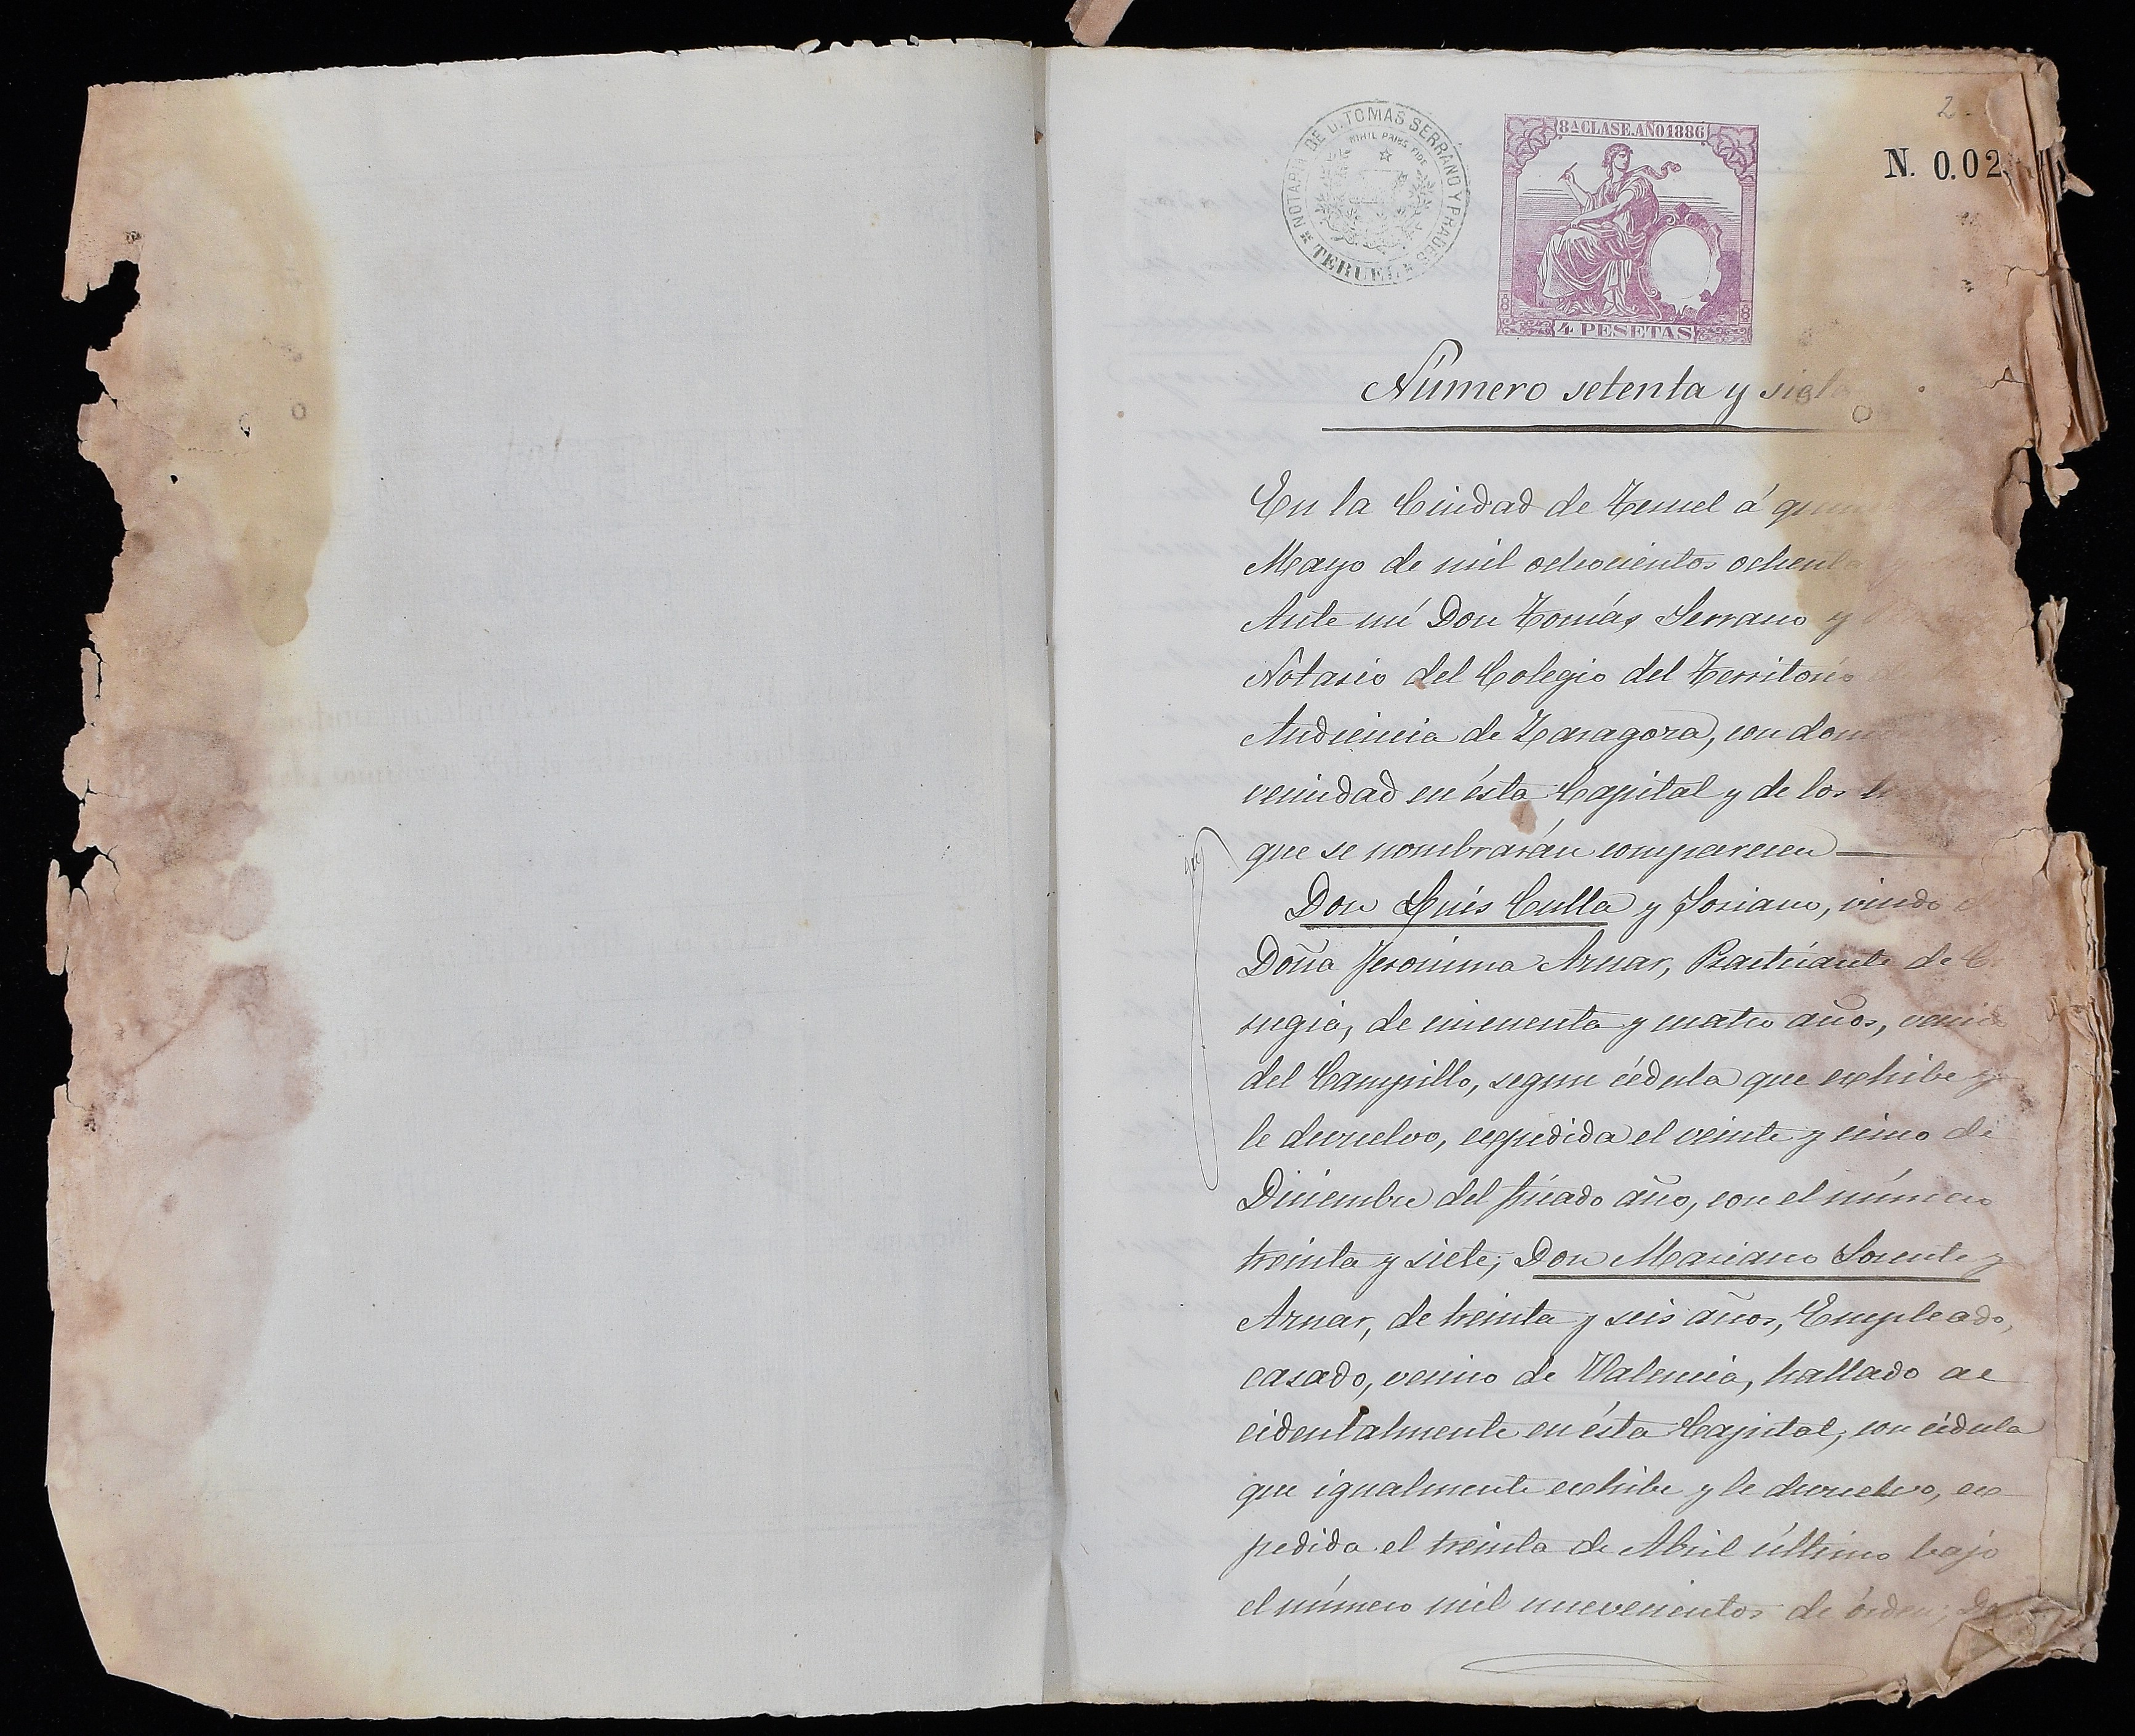 2
NOTARIA DE D. TOMAS SERRANO Y PRADES
NIHIL PRIUS FIDE
TERUEL
8ª CLASE. AÑO 1886
4 PESETAS
N. 0.02
Número setenta y siete
En la Ciudad de Teruel á
Mayo de mil ochocientos ochenta y
Ante mí Don Tomás Serrano y
Notario del Colegio del Territorio
Audiencia de Zaragoza, con
vecindad en ésta Capital y de los
que se nombrarán comparecen
Don Luís Culla y Soriano, viudo
Doña Jeronima Aznar, Practicante de
rugia, de cincuenta y cuatro años,
del Campillo, segun cédula que exhibe y
le devuelvo, expedida el veinte y cinco de
Diciembre del finado año, con el número
treinta y siete; Don Mariano Lorente y
Aznar, de treinta y seis años, Empleado,
casado, vecino de Valencia, hallado ac
cidentalmente en ésta Capital, con cédula
que igualmente exhibe y le devuelvo, ex
pedida el treinta de Abril último bajo
el número mil nuevecientos de órden;